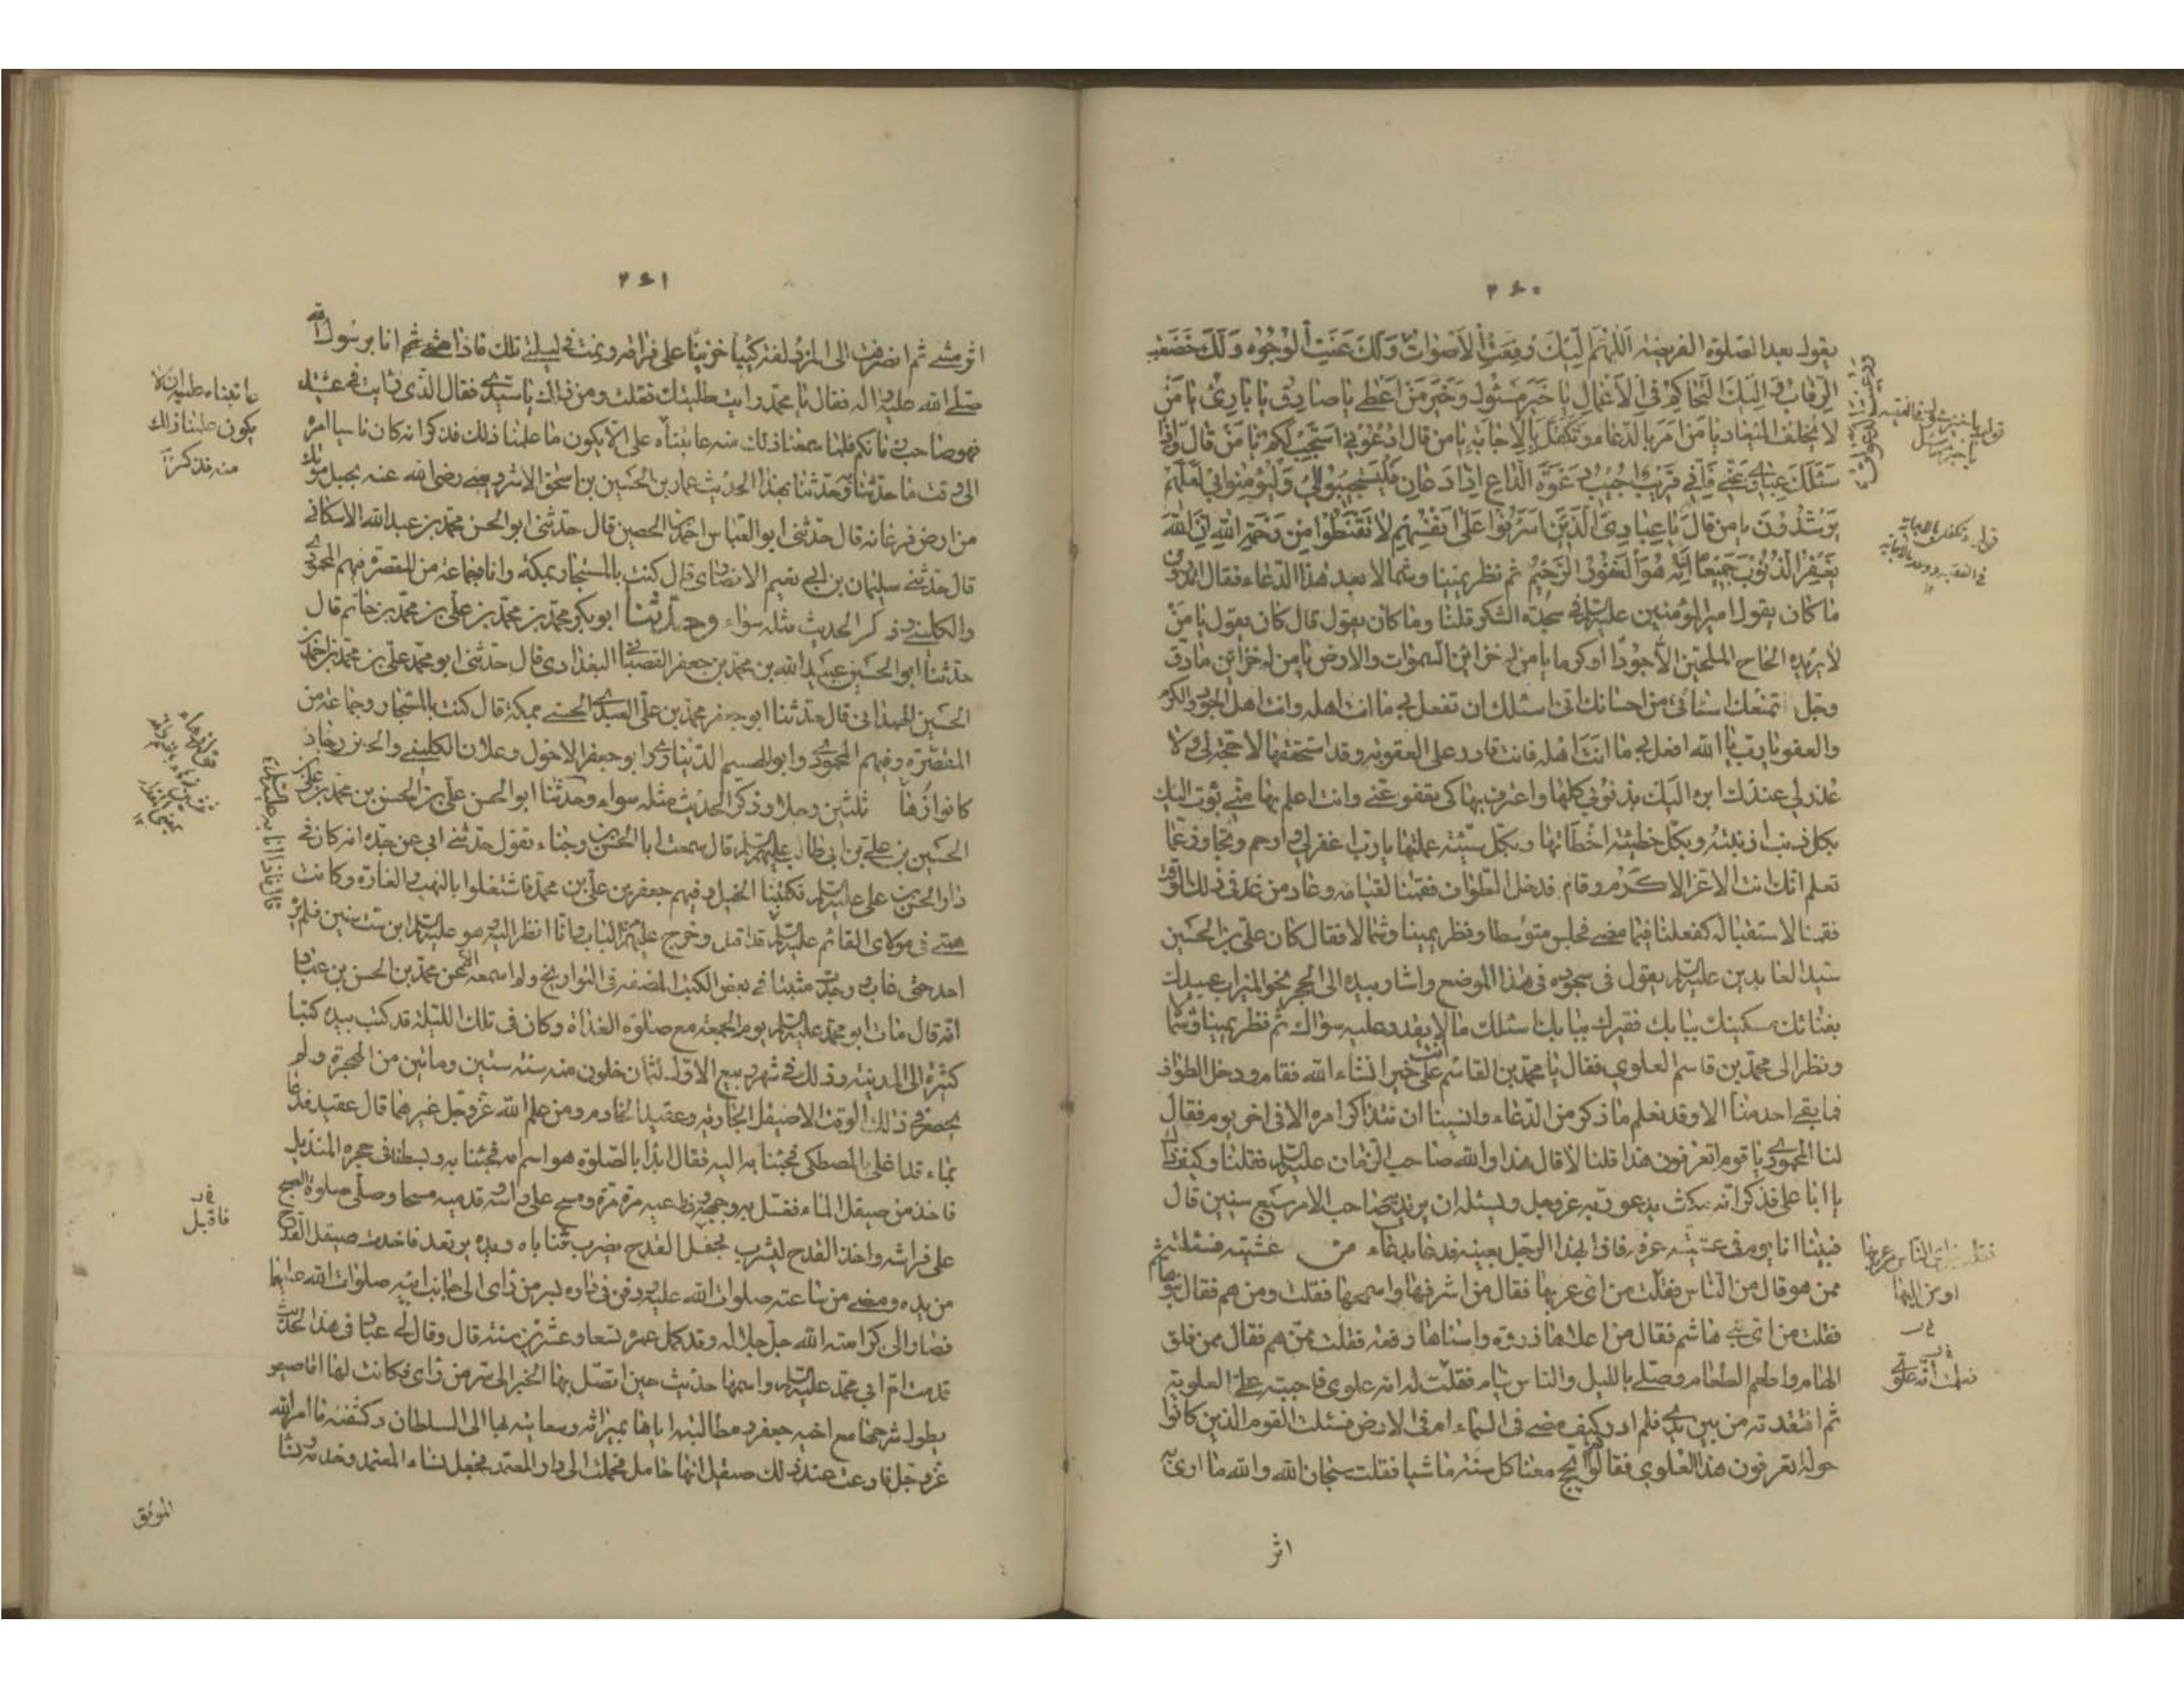 ٢٦٠
يقول بعد الصلوة الفريضة اَللّهُمَّ اِلَيْكَ رُفِعَتِ الْاَصْواتُ وَلَكَ عَنَتِ الْوُجُوهُ وَلَكَ خَضَعَتِ
الرِّقابُ وَ اِلَيْكَ التَّحاكُمُ فِي الْاَعْمالِ يا خَيْرَ مَسْئُولٍ وَخَيْرَ مَنْ اَعْطى يا صادِقُ يا بارِئُ يا مَنْ
لا يُخْلِفُ الْميعادَ يا مَنْ اَمَرَ بِالدُّعاءِ وَتَكَفَّلَ بِالْاِجابَةِ يا مَنْ قالَ ادْعُوني اَسْتَجِبْ لَكُمْ يا مَنْ قالَ وَاِذا
سَئَلَكَ عِبادي عَنّي فَاِنّي قَريبٌ اُجيبُ دَعْوَةَ الدّاعِ اِذا دَعانِ فَلْيَسْتَجيبُوا لي وَلْيُؤْمِنُوا بي لَعَلَّهُمْ
يَرْشُدُونَ يا مَنْ قالَ يا عِبادِيَ الَّذينَ اَسْرَفُوا عَلى اَنْفُسِهِمْ لا تَقْنَطُوا مِنْ رَحْمَةِ اللّهِ اِنَّ اللّهَ
يَغْفِرُ الذُّنُوبَ جَميعًا اِنَّهُ هُوَ الْغَفُورُ الرَّحيمُ ثم نظر يمينا وشمالا بعد هذا الدعاء فقال اتدرون
ما كان يقول امير المؤمنين عليه السلام في سجدة الشكر قلنا وما كان يقول قال كان يقول يا مَنْ
لا يزيده الحاح الملحين الا جودا وكرما يا من له خزائن السموات والارض يا من له خزائن ما دق
وجل لا تمنعك اسائتي من احسانك اني اسئلك ان تفعل بي ما انت اهله وانت اهل الجود والكرم
والعفو يا رب يا الله افعل بي ما انت اهله فانت قادر على العقوبة وقد استحققتها لا حجة لي ولا
عذر لي عندك ابوء اليك بذنوبي كلها واعترف بها كي تعفو عني وانت اعلم بها مني بؤت اليك
بكل ذنب اذنبته وبكل خطيئة اخطأتها وبكل سيئة عملتها يا رب اغفر لي وارحم وتجاوز عما
تعلم انك انت الاعز الاكرم وقام فدخل الطواف فقمنا لقيامه وعاد من غد في ذلك الوقت
فقمنا لاستقباله كفعلنا فيما مضى فجلس متوسطا ونظر يمينا وشمالا فقال كان علي بن الحسين
سيد العابدين عليه السلام يقول في سجوده في هذا الموضع واشار بيده الى الحجر نحو الميزاب عبيدك
بفنائك مسكينك ببابك فقيرك ببابك اسئلك ما لا يقدر عليه سواك ثم نظر يمينا وشمالا
ونظر الى محمد بن قاسم العلوي فقال يا محمد بن القاسم انت على خير انشاء الله فقام ودخل الطواف
فما بقي احد منا الا وقد تعلم ما ذكر من الدعاء وانسينا ان نتذاكر امره الا في اخر يوم فقال
لنا المحمودي يا قوم اتعرفون هذا قلنا لا قال هذا والله صاحب الزمان عليه السلام فقلنا وكيف ذلك
يا ابا علي فذكر انه مكث يدعو ربه عز وجل ويسئله ان يريه صاحب الامر سبع سنين قال
فبينا انا يوم في عشية عرفة فاذا بهذا الرجل بعينه فدعا بدعاء من عشيته فسئلته
ممن هو قال من الناس فقلت من اي عربها فقال من اشرفها واسمحها فقلت ومن هم فقال بنو هاشم
فقلت من اي بني هاشم فقال من اعلاها ذروة واسناها رفعة فقلت ممن هم فقال ممن فلق
الهام واطعم الطعام وصلى بالليل والناس نيام فقلت انه علوي فاحببته على العلوية
ثم افتقدته من بين يدي فلم ادر كيف مضى في السماء ام في الارض فسئلت القوم الذين كانوا
حوله تعرفون هذا العلوي فقالوا يحج معنا كل سنة ماشيا فقلت سبحان الله والله ما ارى به
اثر
فقلت من اي الناس من عربها
او من
٢٦١
اثر مشي ثم انصرفت الى المزدلفة كئيبا حزينا على فراقه ونمت في ليلتي تلك فاذا انا برسول الله
صلى الله عليه واله فقال يا محمد رايت طلبتك فقلت ومن ذاك يا سيدي فقال الذي رايت في عشيتك
فهو صاحب زمانكم فلما سمعنا ذلك منه عاتبناه على الا يكون ما علمنا ذلك فذكر انه كان ناسيا امره
الى وقت ما حدثنا وحدثنا بهذا الحديث عمار بن الحسين بن اسحق الاشروسني رضي الله عنه بجبل بوتك
من ارض فرغانه قال حدثني ابو العباس احمد بن الحصين قال حدثني ابو الحسن محمد بن عبد الله الاسكافي
قال حدثني سليمان بن ابي نعيم الانصاري قال كنت بالمستجار بمكة وانا وجماعة من المقصرة فيهم المحمودي
والكليني وذكر الحديث مثله سواء وحدثنا ابو بكر محمد بن محمد بن علي بن محمد بن حاتم قال
حدثنا ابو الحسين عبيد الله بن محمد بن جعفر القصباني البغدادي قال حدثني ابو محمد علي بن محمد بن احمد بن
الحسين الهمداني قال حدثنا ابو جعفر محمد بن علي العبدي الحسني بمكة قال كنت بالمستجار وجماعة من
المقصرة وفيهم المحمودي وابو الهيثم الديناري وابو جعفر الاحول وعلان الكليني والحسن بن وجناء
كانوا زهاء ثلثين رجلا وذكر الحديث مثله سواء وحدثنا ابو الحسن علي بن الحسن بن محمد بن علي بن
الحسين بن علي بن ابي طالب عليهم السلام قال سمعت ابا الحسن بن وجناء يقول حدثني ابي عن جده انه كان في
دار الحسن بن علي عليه السلام فكبستنا الخيل وفيهم جعفر بن علي بن محمد فاشتغلوا بالنهب والغارة وكانت
همتي في مولاي القائم عليه السلام قد اقبل وخرج عليهم من الباب وانا انظر اليه وهو عليه السلام ابن ست سنين فلم يره
احد حتى غاب ووجدت مثبتا في بعض الكتب المصنفة في التواريخ ولم اسمعه الا عن محمد بن الحسن بن عباد
انه قال مات ابو محمد عليه السلام يوم الجمعة مع صلوة الغداة وكان في تلك الليلة قد كتب بيده كتبا
كثيرة الى المدينة وذلك في شهر ربيع الاول لثمان خلون منه سنة ستين ومأتين من الهجرة ولم
يحضره في ذلك الوقت الا صيقل الجارية وعقيد الخادم ومن علم الله عز وجل غيرهما قال عقيد فدعا
بماء قد اغلي بالمصطكي فجئنا به اليه فقال ابدا بالصلوة هو اسلم فجئنا به وبسطنا في حجره المنديل
فاخذ من صيقل الماء فغسل به وجهه وذراعيه مرة مرة ومسح على راسه وقدميه مسحا وصلى صلوة الصبح
على فراشه واخذ القدح ليشرب فجعل القدح يضرب ثناياه ويده ترتعد فاخذت صيقل القدح
من يده ومضى من ساعته صلوات الله عليه ودفن في داره بسر من راى الى جانب ابيه صلوات الله عليهما
فصار الى كرامة الله جل جلاله وقد كمل عمره تسعا وعشرين سنة قال وقال لي عباد في هذا الحديث
قدمت ام ابي محمد عليه السلام واسمها حديث حين اتصل بها الخبر الى سر من راى فكانت لها اقاصيص
يطول شرحها مع اخيه جعفر ومطالبته اياها بميراثه وسعايته بها الى السلطان وكشفه ما امر الله
عز وجل فادعت عند ذلك صيقل انها حامل فحملت الى دار المعتمد فجعل نساء المعتمد وخدمه ونساء
الموفق
عاتبناه
يكون علمنا ذلك
فاقبل